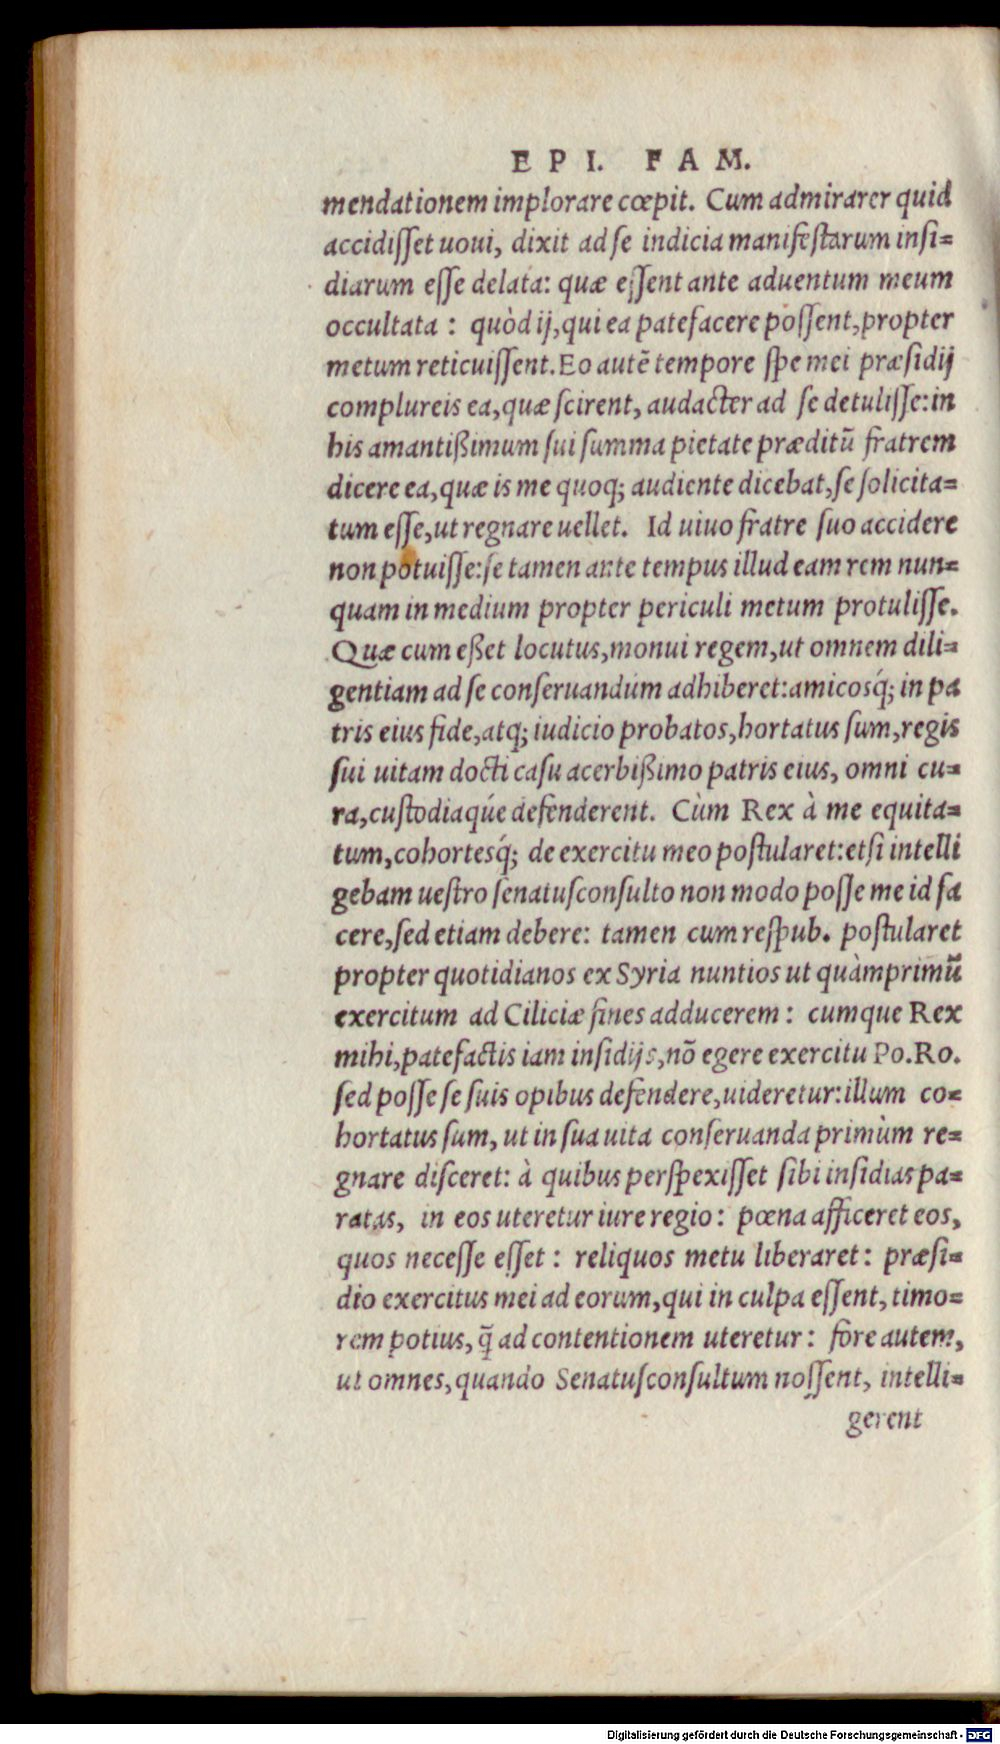 EPI. FAM.
mendationem implorare cœpit. Cum admirarer quid
accidiſſet uoui, dixit ad ſe indicia manifeſtarum inſi=
diarum eſſe delata: quæ eſſent ante aduentum meum
occultata : quòd ij, qui ea patefacere poſſent, propter
metum reticuiſſent. Eo autē tempore ſpe mei præſidij
complureis ea, quæ ſcirent, audacter ad ſe detuliſſe: in
his amantißimum ſui ſumma pietate præditū fratrem
dicere ea, quæ is me quoq; audiente dicebat, ſe ſolicita=
tum eſſe, ut regnare uellet. Id uiuo fratre ſuo accidere
non potuiſſe: ſe tamen ante tempus illud eam rem nun=
quam in medium propter periculi metum protuliſſe.
Quæ cum eßet locutus, monui regem, ut omnem dili=
gentiam ad ſe conſeruandum adhiberet: amicosq́; in pa
tris eius fide, atq; iudicio probatos, hortatus ſum, regis
ſui uitam docti caſu acerbißimo patris eius, omni cu=
ra, cuſtodiaq́ue defenderent. Cùm Rex à me equita=
tum, cohortesq́; de exercitu meo poſtularet: etſi intelli
gebam ueſtro ſenatuſconſulto non modo poſſe me id fa
cere, ſed etiam debere: tamen cum reſpub. poſtularet
propter quotidianos ex Syria nuntios ut quàmprimū
exercitum ad Ciliciæ fines adducerem : cumque Rex
mihi, patefactis iam inſidijs, nō egere exercitu Po. Ro.
ſed poſſe ſe ſuis opibus defendere, uideretur: illum co=
hortatus ſum, ut in ſua uita conſeruanda primùm re=
gnare diſceret: à quibus perſpexiſſet ſibi inſidias pa=
ratas, in eos uteretur iure regio : pœna afficeret eos,
quos neceſſe eſſet : reliquos metu liberaret : præſi=
dio exercitus mei ad eorum, qui in culpa eſſent, timo=
rem potius, q̄ ad contentionem uteretur : fore autem,
ut omnes, quando Senatuſconſultum noſſent, intelli=
gerent
Digitalisierung gefördert durch die Deutsche Forschungsgemeinschaft - DFG